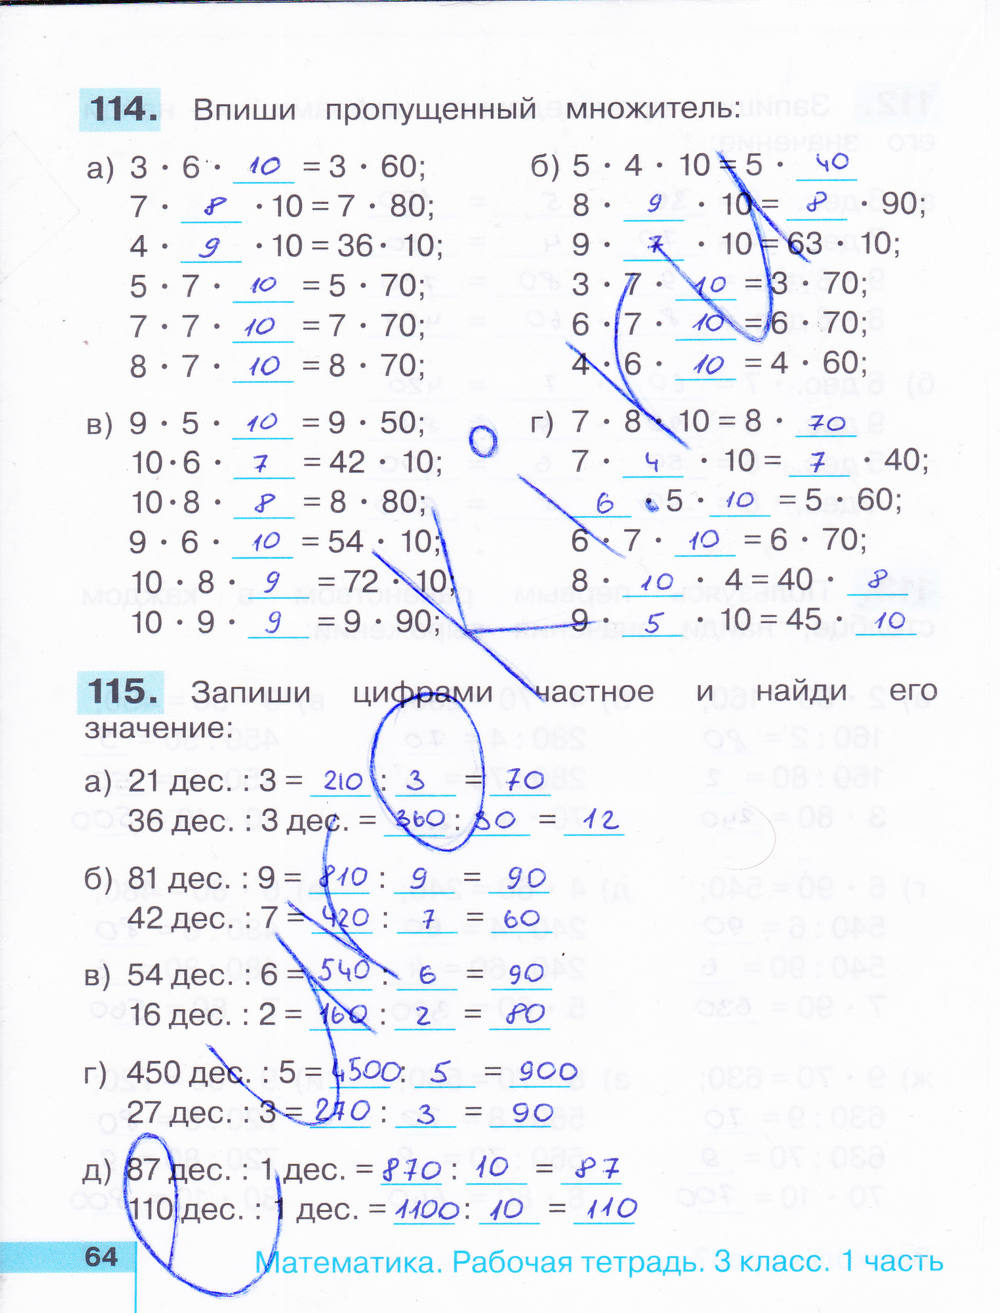 114. Впиши пропущенный множитель:
а) 3 · 6 · 10 = 3 · 60;
7 · 8 · 10 = 7 · 80;
4 · 9 · 10 = 36 · 10;
5 · 7 · 10 = 5 · 70;
7 · 7 · 10 = 7 · 70;
8 · 7 · 10 = 8 · 70;
б) 5 · 4 · 10 = 5 · 40
8 · 9 · 10 = 8 · 90;
9 · 7 · 10 = 63 · 10;
3 · 7 · 10 = 3 · 70;
6 · 7 · 10 = 6 · 70;
4 · 6 · 10 = 4 · 60;
в) 9 · 5 · 10 = 9 · 50;
10 · 6 · 7 = 42 · 10;
10 · 8 · 8 = 8 · 80;
9 · 6 · 10 = 54 · 10;
10 · 8 · 9 = 72 · 10;
10 · 9 · 9 = 9 · 90;
г) 7 · 8 · 10 = 8 · 70
7 · 4 · 10 = 7 · 40;
6 · 5 · 10 = 5 · 60;
6 · 7 · 10 = 6 · 70;
8 · 10 · 4 = 40 · 8
9 · 5 · 10 = 45 · 10
115. Запиши цифрами частное и найди его
значение:
а) 21 дес. : 3 = 210 : 3 = 70
36 дес. : 3 дес. = 360 : 30 = 12
б) 81 дес. : 9 = 810 : 9 = 90
42 дес. : 7 = 420 : 7 = 60
в) 54 дес. : 6 = 540 : 6 = 90
16 дес. : 2 = 160 : 2 = 80
г) 450 дес. : 5 = 4500 : 5 = 900
27 дес. : 3 = 270 : 3 = 90
д) 87 дес. : 1 дес. = 870 : 10 = 87
110 дес. : 1 дес. = 1100 : 10 = 110
64 Математика. Рабочая тетрадь. 3 класс. 1 часть